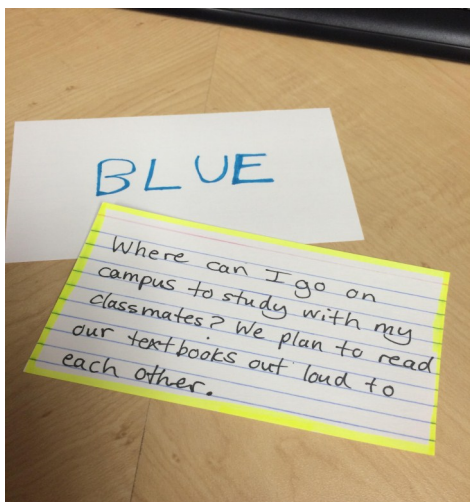 BLUE
Where can I go on
campus to study with my
classmates? We plan to read
our textbooks out loud to
each other.